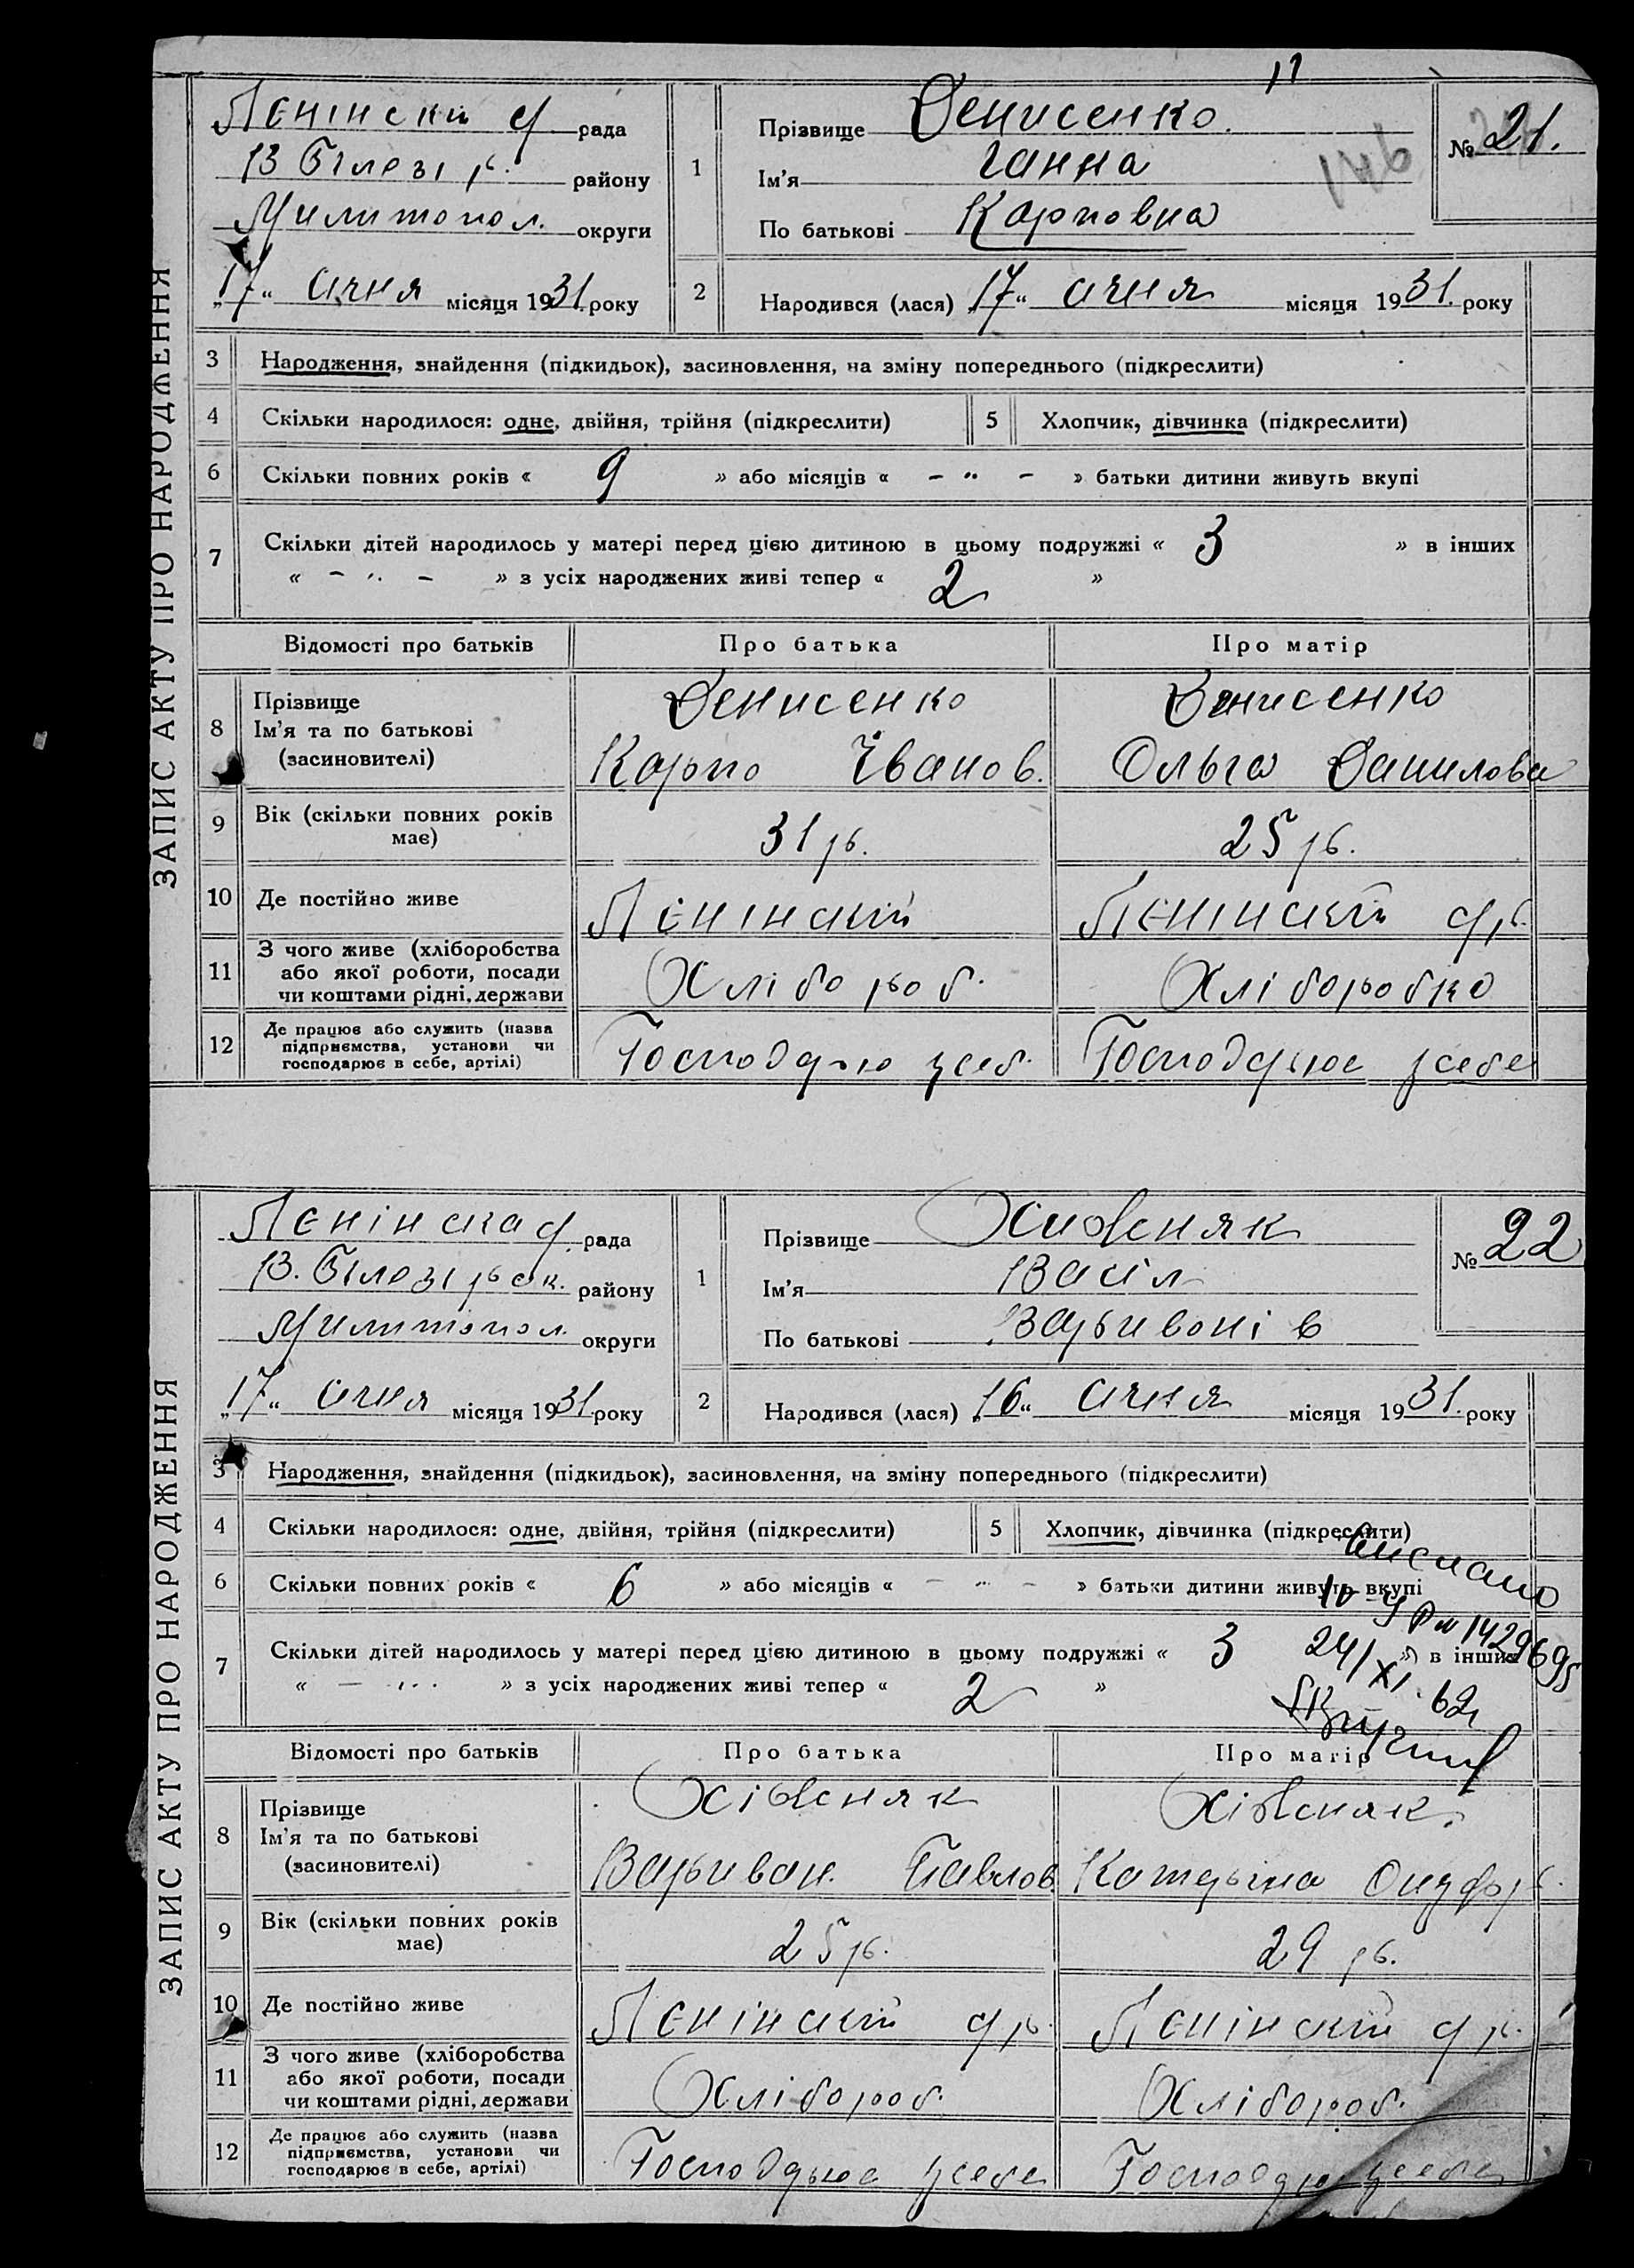 11
ЗАПИС АКТУ ПРО НАРОДЖЕННЯ
Ленінский рада
В Білозір. району
Милитопол. округи
„17“ січня місяця 1931. року
1
Прізвище Денисенко.
Ім'я Ганна
По батькові Карповна
146
№ 21.
2
Народився (лася) „17“ січня місяця 1931. року
3 Народження, знайдення (підкидьок), засиновлення, на зміну попереднього (підкреслити)
4 Скільки народилося: одне, двійня, трійня (підкреслити) 5 Хлопчик, дівчинка (підкреслити)
6 Скільки повних років « 9 » або місяців « – " – » батьки дитини живуть вкупі
7 Скільки дітей народилось у матері перед цією дитиною в цьому подружжі « 3 » в інших
« – " – » з усіх народжених живі тепер « 2 »
Відомості про батьків Про батька Про матір
8 Прізвище Ім'я та по батькові (засиновителі)
Денисенко Денисенко
Карпо Іванов. Ольга Данилова
9 Вік (скільки повних років має) 31 р. 25 р.
10 Де постійно живе Ленінский Ленінский
11 З чого живе (хліборобства або якої роботи, посади чи коштами рідні, держави Хлібороб. Хліборобка
12 Де працює або служить (назва підприємства, установи чи господарює в себе, артілі) Господарю усеб. Господарює усебе
ЗАПИС АКТУ ПРО НАРОДЖЕННЯ
Ленінска рада
В. Білозірск. району
Милитопол. округи
„17“ січня місяця 1931 року
1
Прізвище Хижняк
Ім'я Васіл
По батькові Варивонів
№ 22
2
Народився (лася) „16“ січня місяця 1931. року
3 Народження, знайдення (підкидьок), засиновлення, на зміну попереднього (підкреслити)
4 Скільки народилося: одне, двійня, трійня (підкреслити) 5 Хлопчик, дівчинка (підкреслити)
6 Скільки повних років « 6 » або місяців « – " – » батьки дитини живуть вкупі
7 Скільки дітей народилось у матері перед цією дитиною в цьому подружжі « 3 » в інших
« – " » з усіх народжених живі тепер « 2 »
Виписано
№ 1429695
24/XI.62
Відомості про батьків Про батька Про матір
8 Прізвище Ім'я та по батькові (засиновителі)
Хіжняк Хіжняк.
Вариван. Павлов. Катерина Онуфр.
9 Вік (скільки повних років має) 25 р. 29 р.
10 Де постійно живе Ленінский Ленінский
11 З чого живе (хліборобства або якої роботи, посади чи коштами рідні, держави Хлібороб. Хлібороб.
12 Де працює або служить (назва підприємства, установи чи господарює в себе, артілі) Господарює усебе Господарю усебе